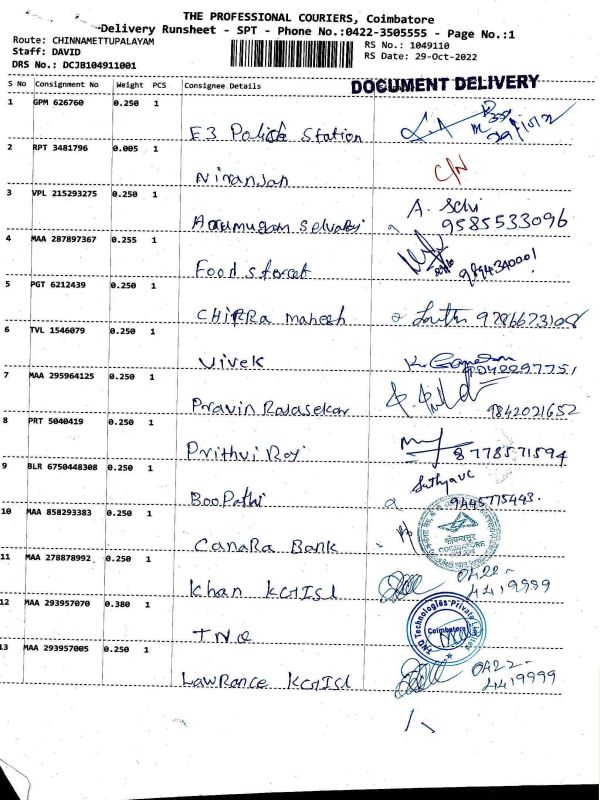 THE PROFESSIONAL COURIERS, Coimbatore
Delivery Runsheet - SPT - Phone No.:0422-3505555 - Page No.:1
Route: CHINNAMETTUPALAYAM
Staff: DAVID
DRS No.: DCJB104911001
RS No.: 1049110
RS Date: 29-Oct-2022
S No Consignment No Weight PCS Consignee Details
DOCUMENT DELIVERY
1 GPM 626760 0.250 1
E3 Police Station
2 RPT 3481796 0.005 1
Niranjan
C/N
3 VPL 215293275 0.250 1
Selvaraj
A. Selvi
9585533096
4 MAA 287897367 0.255 1
Foods forcet
9894340001
5 PGT 6212439 0.250 1
CHIRRA Mahesh
9786673108
6 TVL 1546079 0.250 1
Vivek
K. Ganesan
7 MAA 295964125 0.250 1
Pravin Rajasekar
9842021652
8 PRT 5040419 0.250 1
Prithvi Roy
8778571594
9 BLR 6750448308 0.250 1
BooPathi
Sathya VC
9445775443.
10 MAA 858293383 0.250 1
CANARA Bank
COIMBATORE
11 MAA 278878992 0.250 1
Khan KGISL
0422-
4419999
12 MAA 293957070 0.380 1
TNQ
Technologies Private
Coimbatore
13 MAA 293957005 0.250 1
LawRance KGISL
0422-
4419999